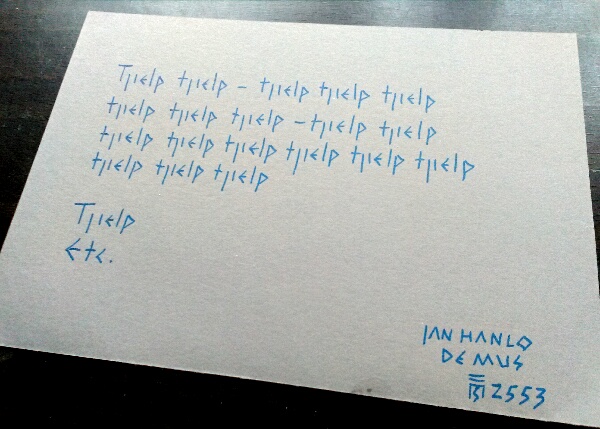 Tjielp tjielp – tjielp tjielp tjielp
tjielp tjielp tjielp – tjielp tjielp
tjielp tjielp tjielp tjielp tjielp tjielp
tjielp tjielp tjielp
Tjielp
Etc.
JAN HANLO
DE MUS
2553